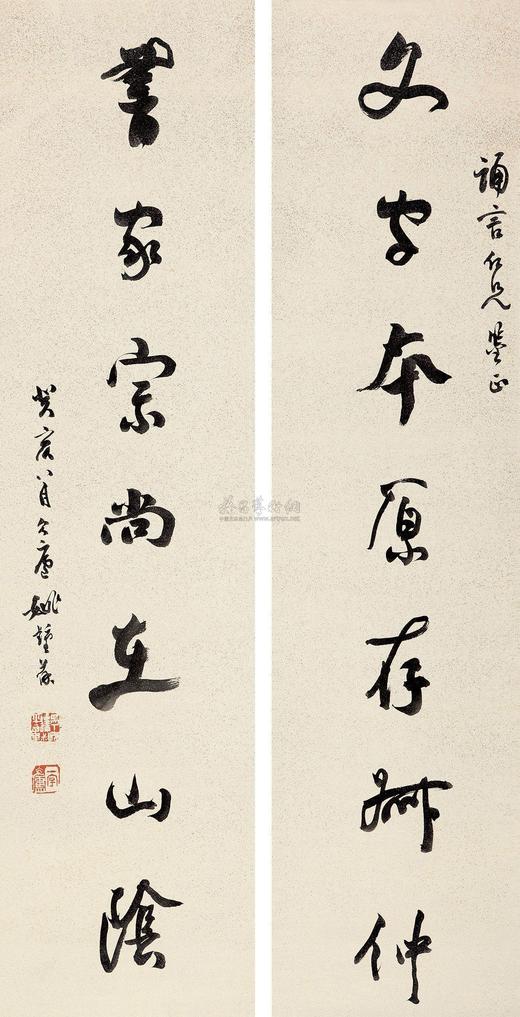 誦言仁兄鑒正
文字本原存仲
書家宗尚在山陰
癸亥八月久廬姚鍾葆
雅昌藝術網
www.artron.net